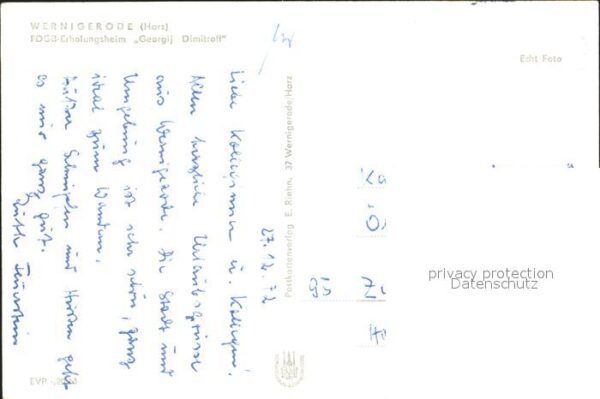 WERNIGERODE (Harz)
FDGB-Erholungsheim „Georgij Dimitroff"
Echt Foto
27.12.72
Liebe Kolleginnen u. Kollegen!
Allen herzliche Urlaubsgrüsse
aus Wernigerode. Die Stadt und
Umgebung ist sehr schön, ganz
ideal zum Wandern.
Außer Schnupfen und Husten geht
es mir ganz gut.
Postkartenverlag E. Riehn, 37 Wernigerode/Harz
privacy protection
Datenschutz
EVP -,20 M